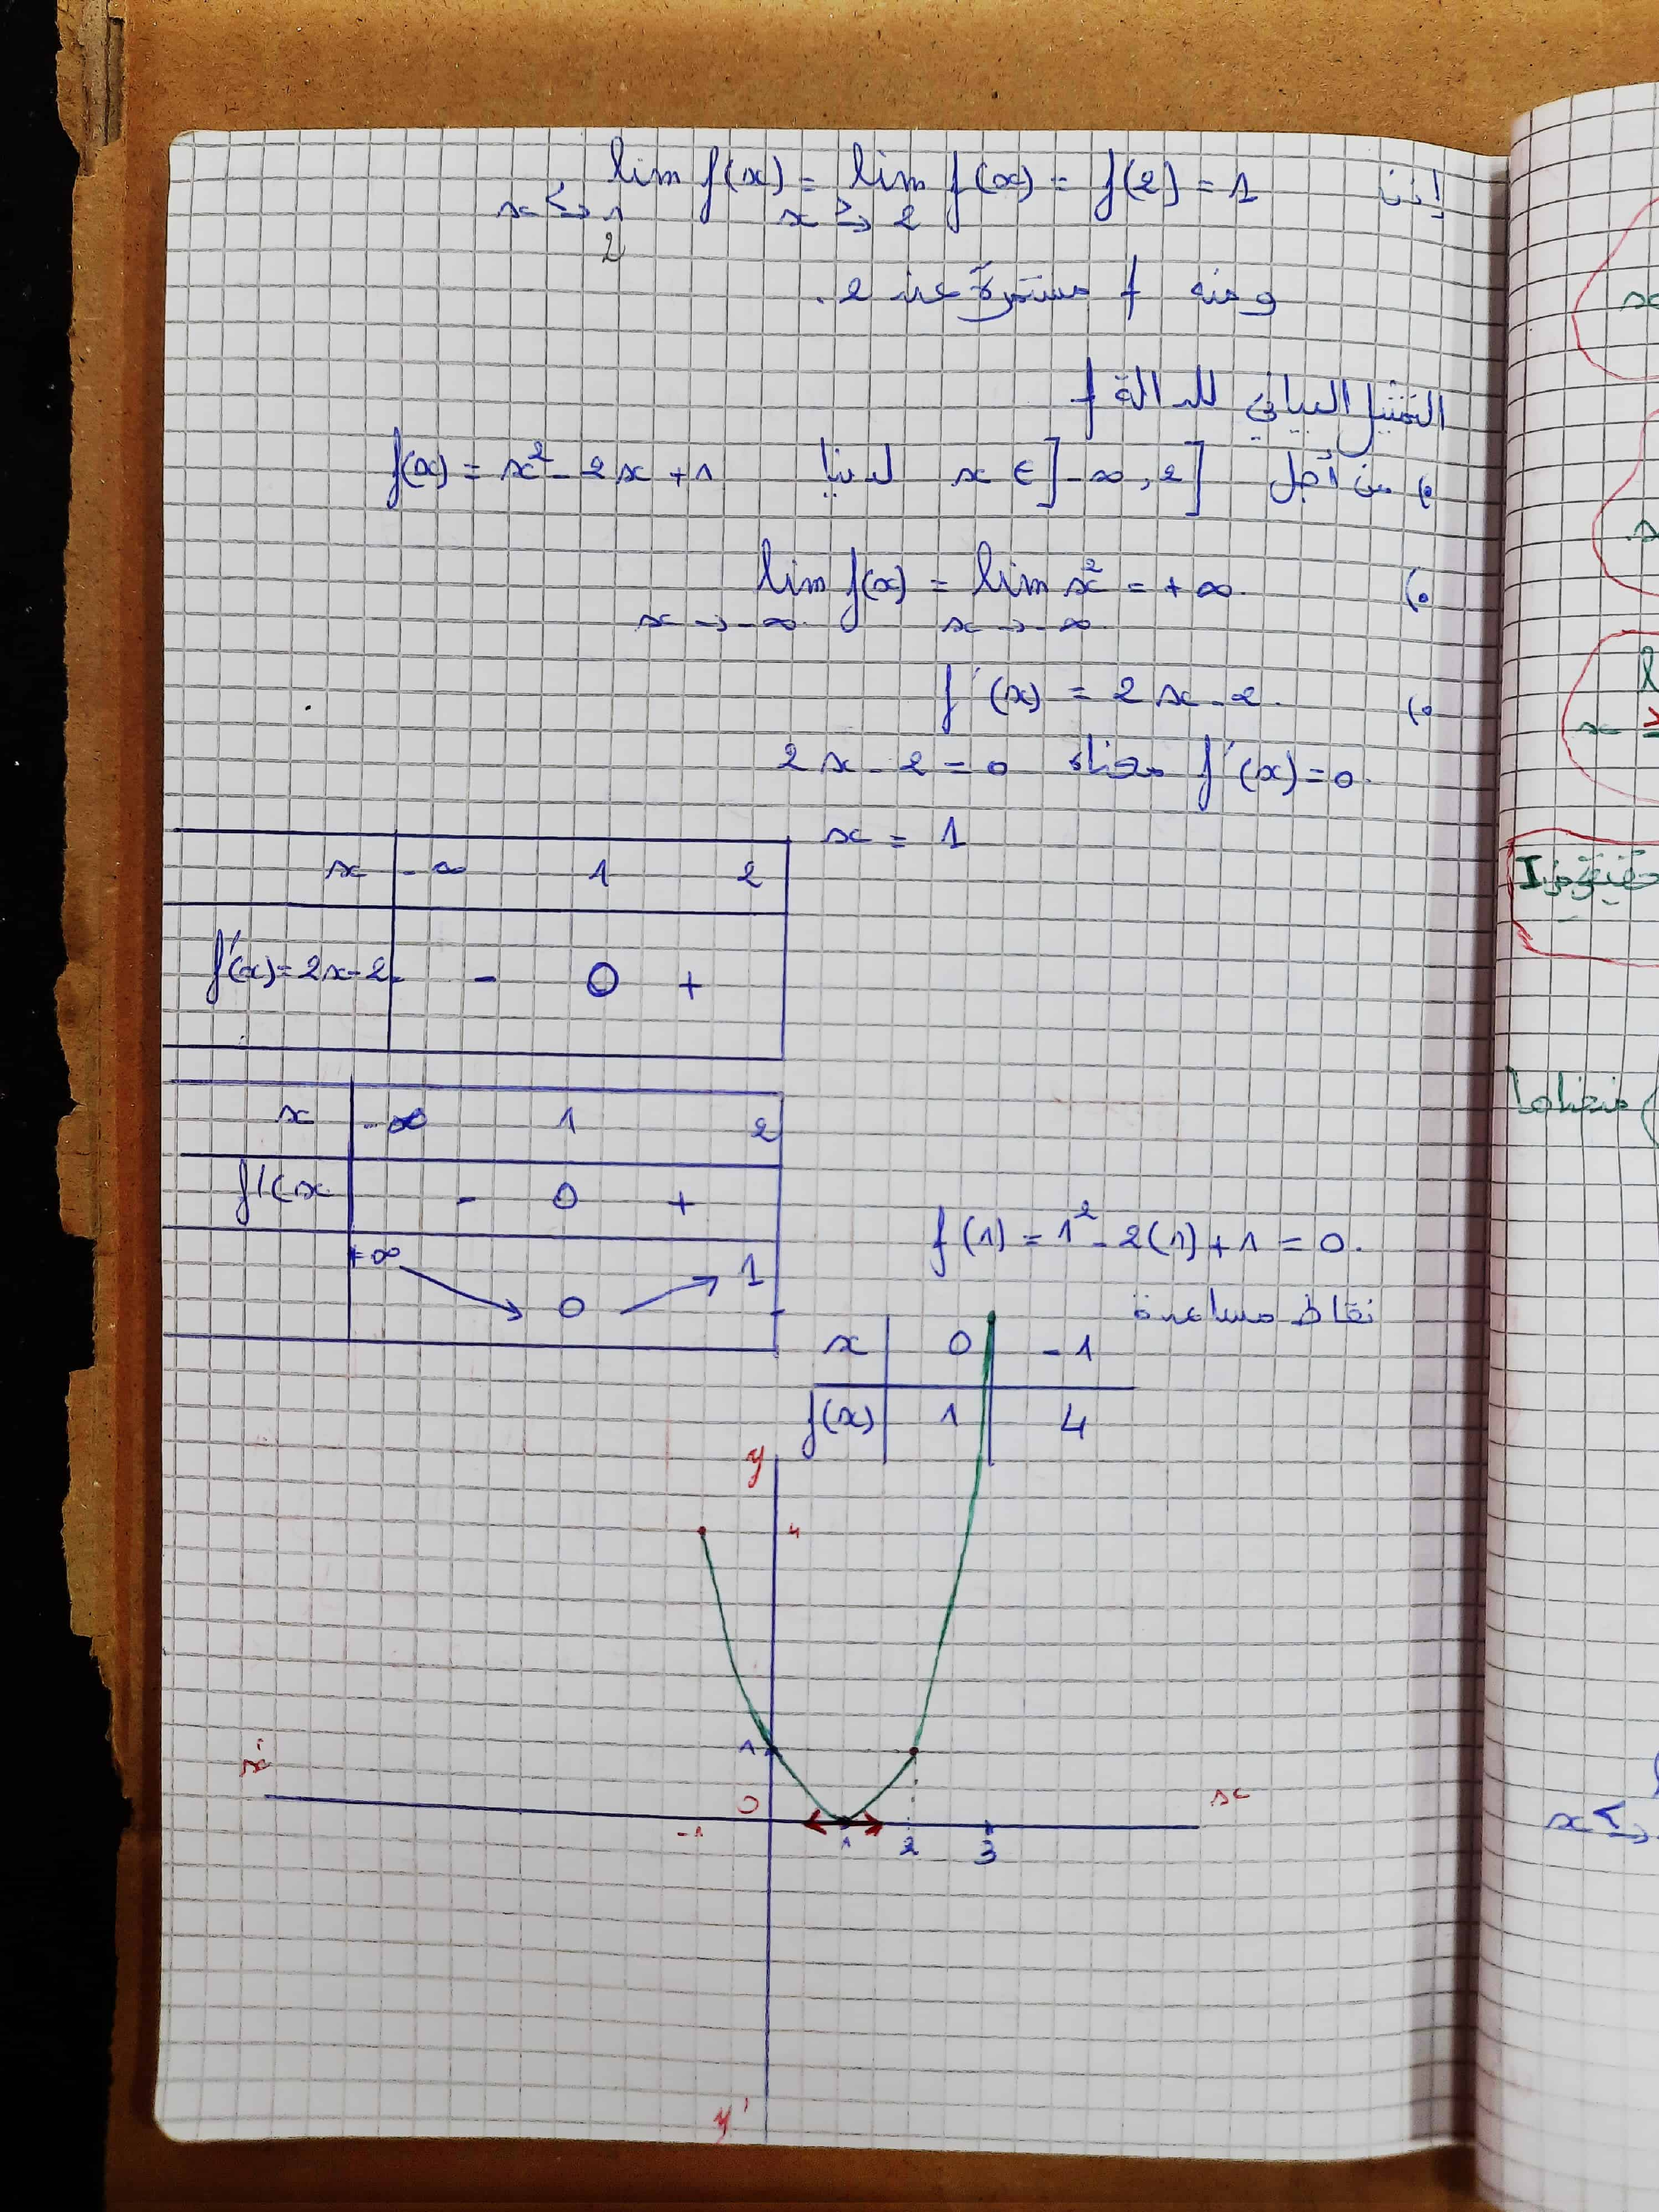 إذن lim f(x) = lim f(x) = f(2) = 1
x ≤→ 1 x ≥→ 2
2
ومنه f مستمرة عند 2.
التمثيل البياني للدالة f
من أجل x ∈ ]-∞, 2] لدينا f(x) = x² - 2x + 1
lim f(x) = lim x² = +∞.
x → -∞ x → -∞
f'(x) = 2x - 2.
f'(x) = 0 معناه 2x - 2 = 0
x = 1
x -∞ 1 2
f'(x) = 2x - 2 - 0 +
x -∞ 1 2
f'(x - 0 +
+∞ 0 1
f(1) = 1² - 2(1) + 1 = 0.
نقاط مساعدة
x 0 -1
f(x) 1 4
y
4
1
x'
0
x
-1 1 2 3
y'
I
منحناها